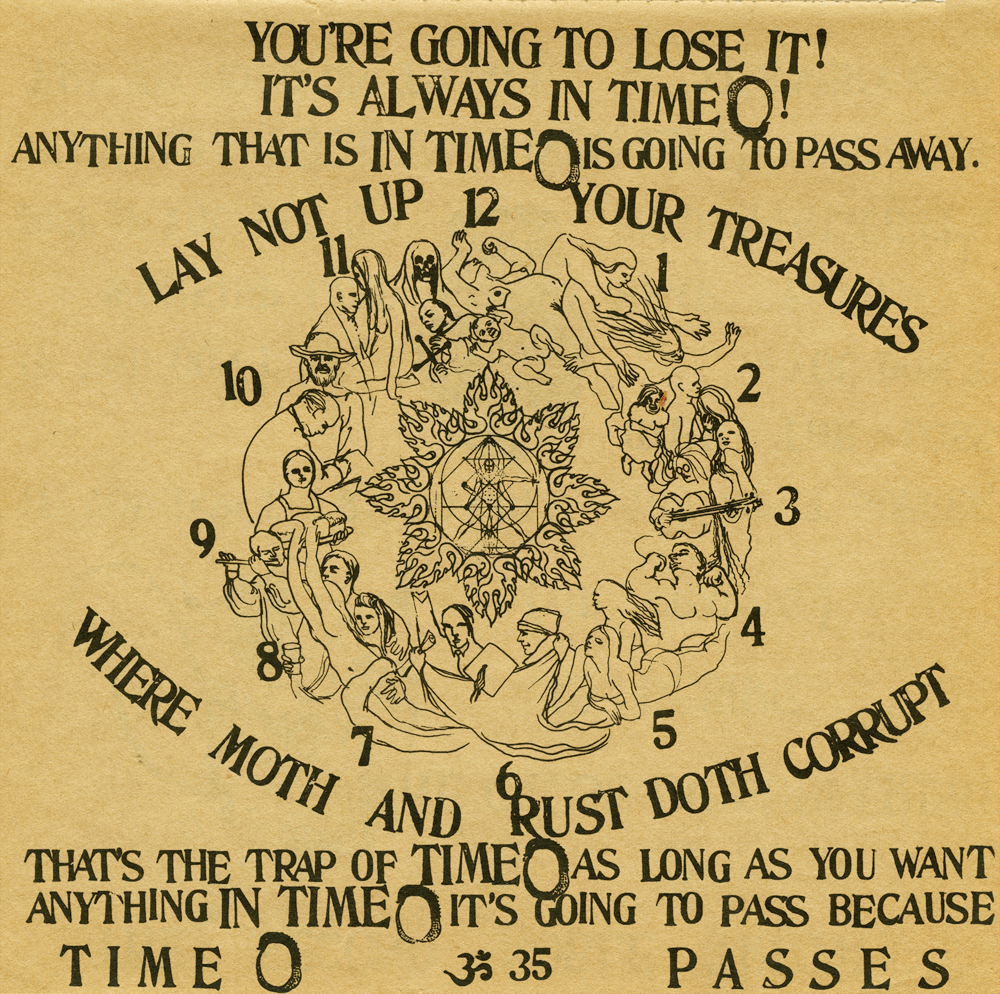 YOU'RE GOING TO LOSE IT!
IT'S ALWAYS IN TIME!
ANYTHING THAT IS IN TIME IS GOING TO PASS AWAY.
LAY NOT UP YOUR TREASURES
12
1
2
3
4
5
6
7
8
9
10
11
WHERE MOTH AND RUST DOTH CORRUPT
THAT'S THE TRAP OF TIME AS LONG AS YOU WANT
ANYTHING IN TIME IT'S GOING TO PASS BECAUSE
TIME ॐ 35 PASSES